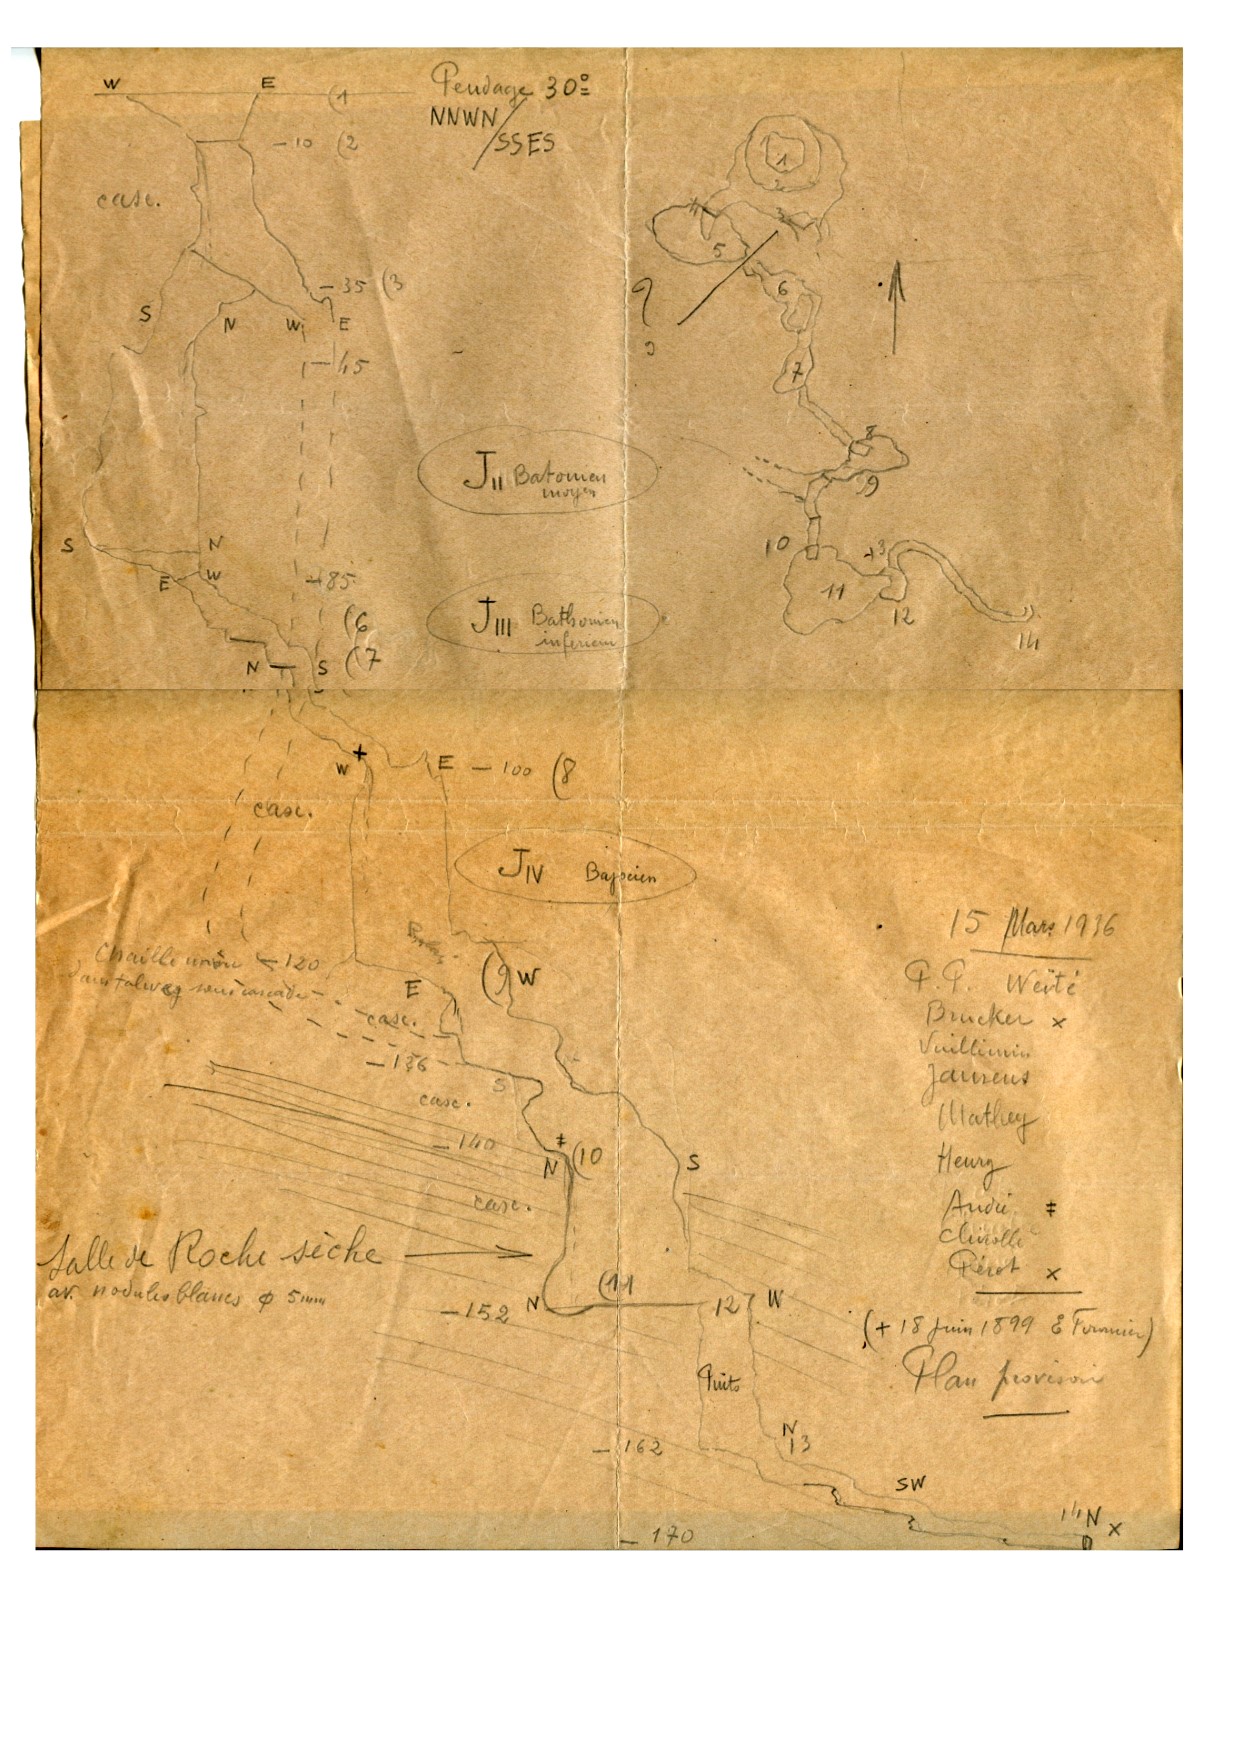 W E (1
Pendage 30°
NNWN
/SSES
-10 (2
casc.
-35 (3
S N W E
-45
JII Batonien
moyen
S N
E W
-85
(6
JIII Bathonien
inferieur
N S (7
1
2
3
5
6
7
8
9
10
11
13
12
14
W + E -100 (8
casc.
JIV Bajocien
-120
dans talweg sous cascade
E
(9 W
casc.
-136
S
casc.
-140
N ‡ (10
S
casc.
Salle de Roche sèche
av. nodules blancs φ 5mm
-152 N (11 12 W
Puits
-162
N
13
SW
14 N x
-170
15 Mars 1936
P.P. Weité
Brucker x
Vuillimin
Jaurens
Mathey
Henry
André ‡
Pérot x
(+ 18 Juin 1899 E Fournier)
Plan provisoir